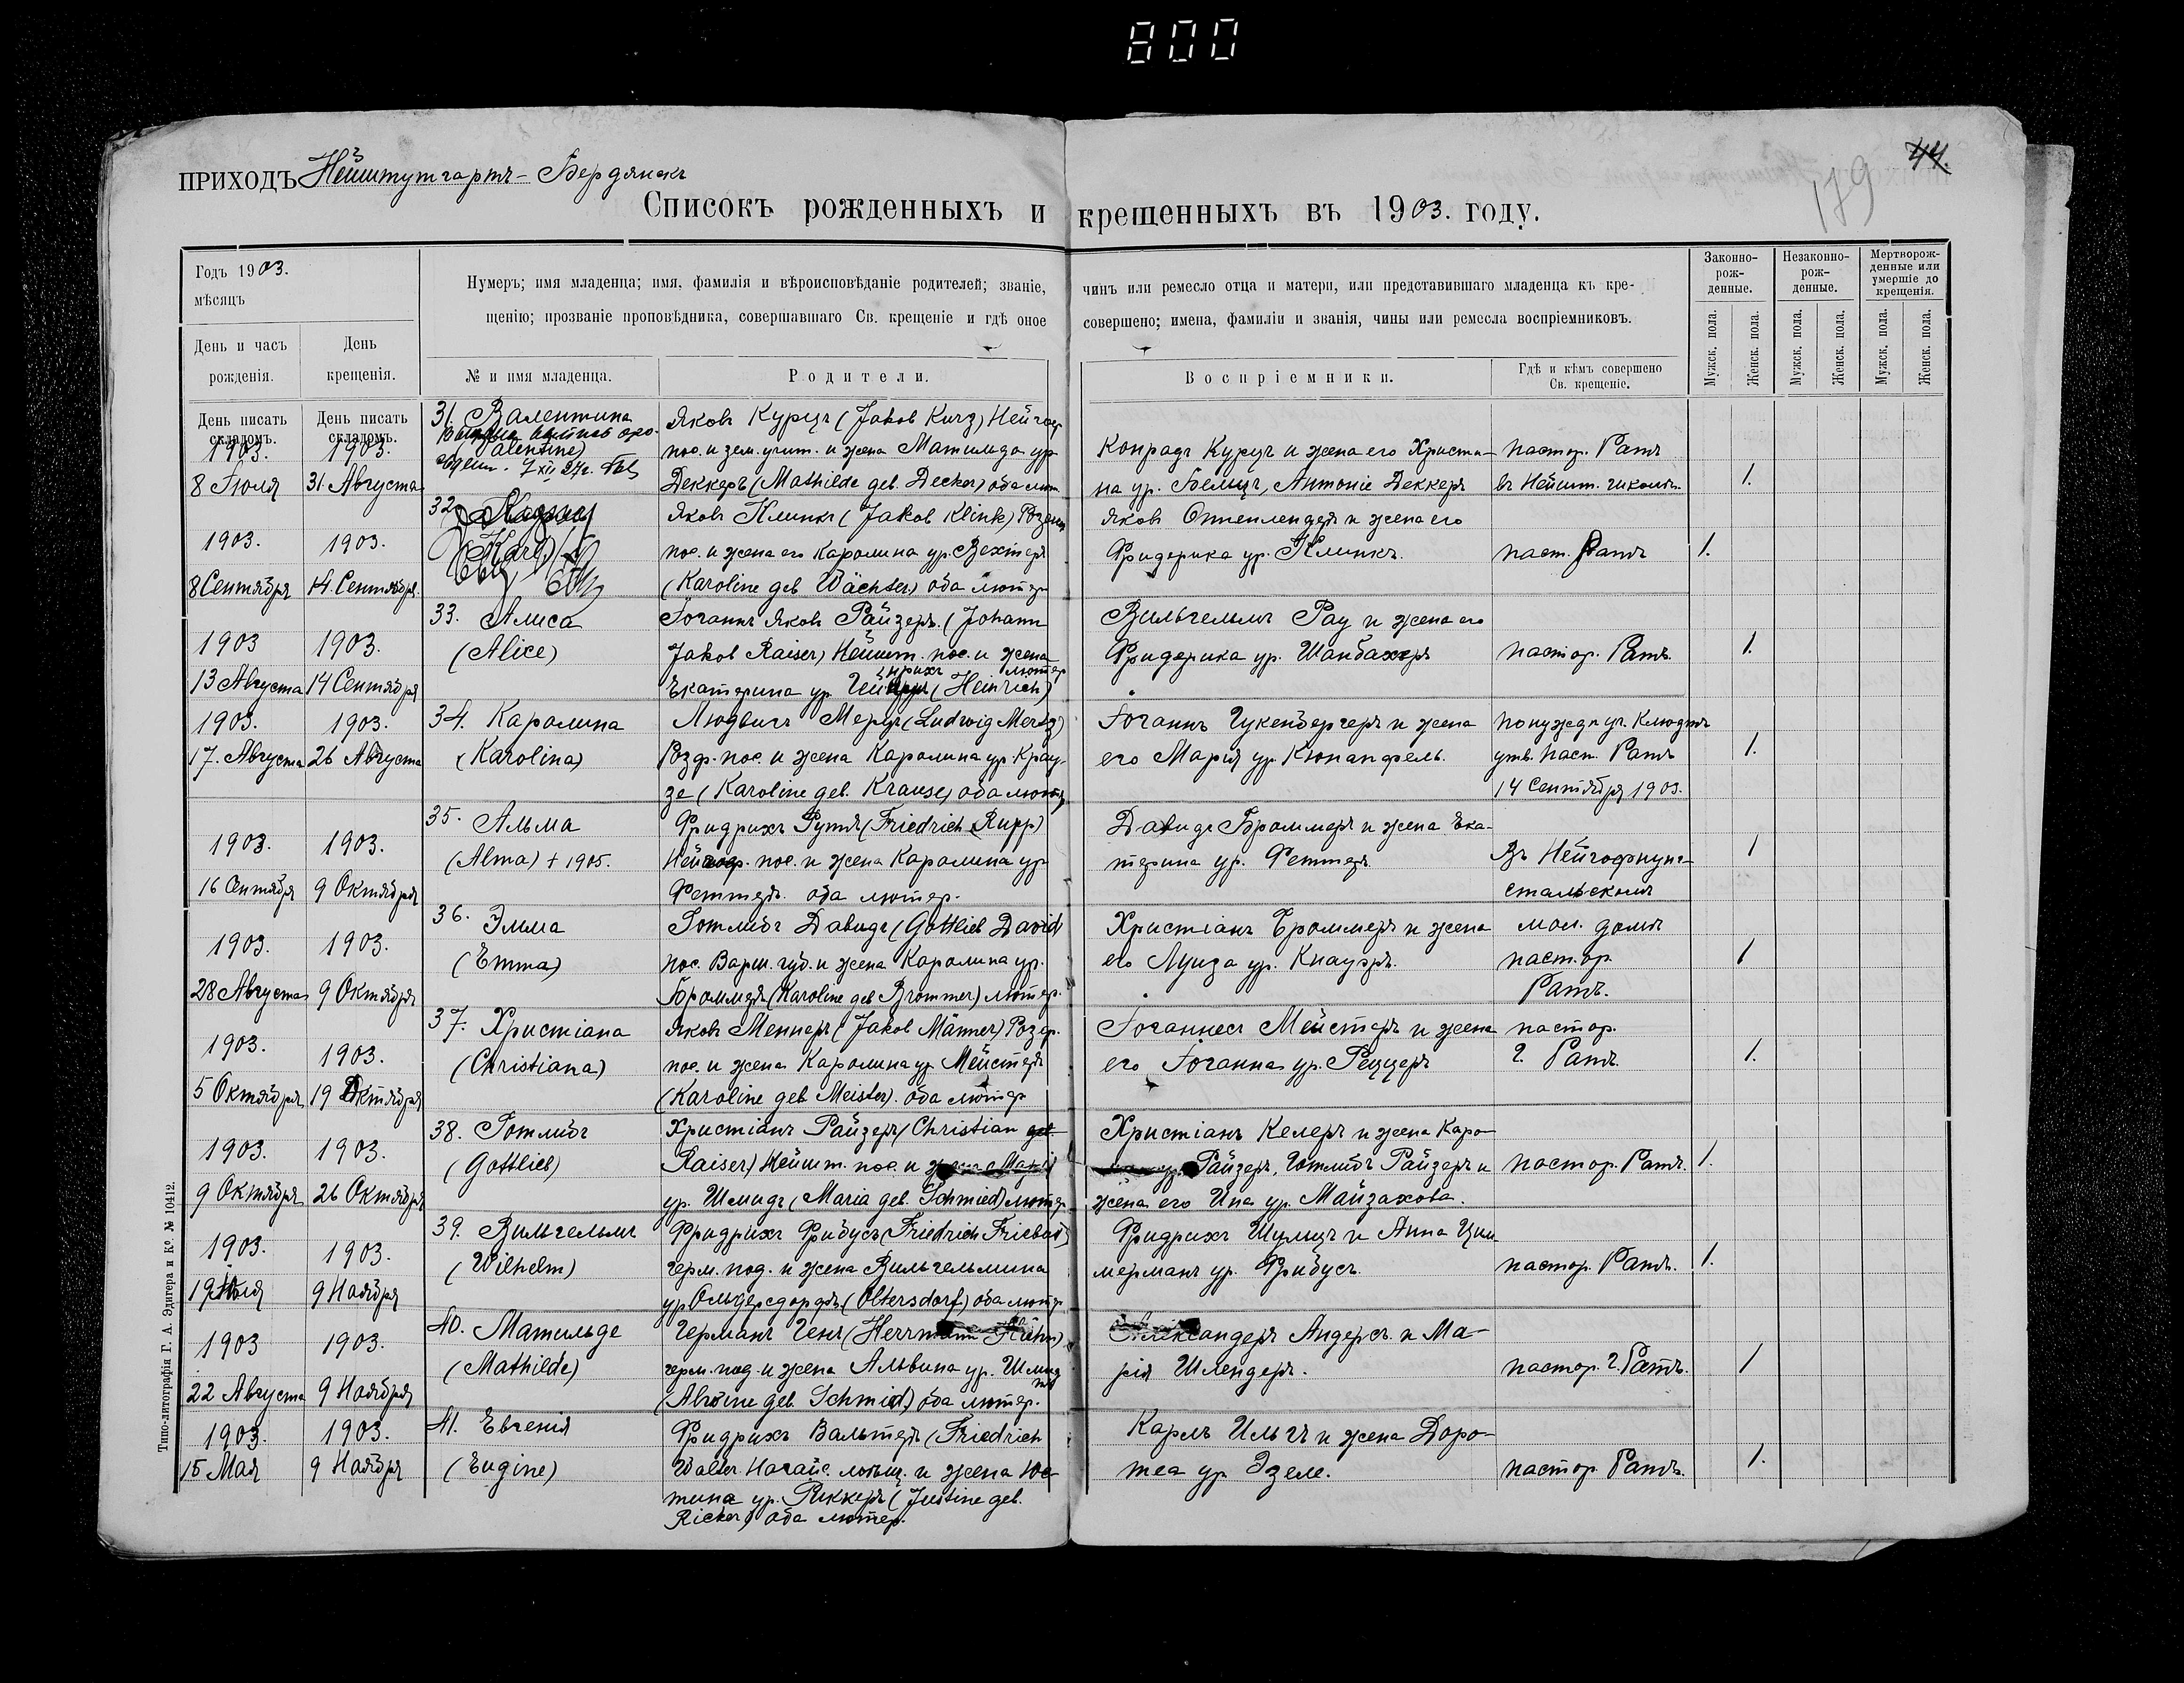 800
ПРИХОДЪ Нейштутгартъ - Бердянскъ
44.
179
Списокъ рожденныхъ и крещенныхъ въ 1903. году.
Годъ 1903.
мѣсяцъ
День и часъ рожденія.
День крещенія.
Нумеръ; имя младенца; имя, фамилія и вѣроисповѣданіе родителей; званіе, чинъ или ремесло отца и матери, или представившаго младенца къ кре-
щенію; прозваніе проповѣдника, совершавшаго Св. крещеніе и гдѣ оное совершено; имена, фамиліи и званія, чины или ремесла воспріемниковъ.
№ и имя младенца.
Родители.
Воспріемники.
Гдѣ и кѣмъ совершено Св. крещеніе.
Законно-рож-денные.
Незаконно-рож-денные.
Мертворож-денные или умершіе до крещенія.
Мужск. пола.
Женск. пола.
Мужск. пола.
Женск. пола.
Мужск. пола.
Женск. пола.
День писать складомъ.
День писать складомъ.
1903.
8 Іюля
1903.
31 Августа
31. Валентина
(Valentine)
7 XII 27г.
Яковъ Курцъ (Jakob Kurz) Нейгоф
пос. и зем. учит. и жена Матильда ур.
Деккеръ (Mathilde geb. Decker) оба лют.
Конрадъ Курцъ и жена его Христи-
на ур. Бельцъ, Антоніе Деккеръ
пастор. Ратъ
въ Нейшт.
1.
1903.
8 Сентября
1903.
14. Сентября.
32.
(Karl)
Яковъ Клинкъ (Jakob Klink) Розенф
пос. и жена его Каролина ур. Вехтеръ
(Karoline geb Wächter) оба лютер
Яковъ Оппенлендеръ и жена его
Фридерика ур. Клинкъ.
паст. Ратъ
1.
1903
13 Августа
1903.
14 Сентября
33. Алиса
(Alice)
Іоганнъ Яковъ Райзеръ. (Johann
Jakob Raiser) Нейшт. пос. и жена
Екатерина ур. Гейнрихъ (Heinrich) лютер
Вильгельмъ Рау и жена его
Фридерика ур. Шанбахеръ
пастор. Ратъ.
1.
1903.
17. Августа
1903.
26 Августа
34. Каролина
(Karolina)
Людвигъ Мерцъ (Ludwig Mertz)
Розф. пос. и жена Каролина ур. Крау-
зе (Karoline geb. Krause) оба лютер
Іоганнъ Цукенбергеръ и жена
его Марія ур. Кюнапфель.
по нужде уч. Клюдтъ
утв. паст. Ратъ
14 Сентября 1903.
1.
1903.
16 Сентября
1903.
9 Октября
35. Альма
(Alma) † 1905.
Фридрихъ Руппъ (Friedrich Rupp)
Нейгоф. пос. и жена Каролина ур
Феттеръ. оба лютер.
Давидъ Броммеръ и жена Ека-
терина ур. Феттеръ.
Въ Нейгофнунг-
стальскомъ
1
1903.
28 Августа
1903.
9 Октября
36. Эмма
(Emma)
Готлибъ Давидъ (Gottlieb David)
пос. Варш. губ. и жена Каролина ур.
Броммеръ (Karoline geb Brommer) лютер.
Христіанъ Броммеръ и жена
его Луиза ур. Кнауэръ.
мол. домѣ
пастор.
Ратъ.
1
1903.
5 Октября
1903.
19 Октября
37. Христіана
(Christiana)
Яковъ Меннеръ (Jakob Männer) Роз ф.
пос. и жена Каролина ур Мейстеръ
(Karoline geb Meister). оба лютер
Іоганнесъ Мейстеръ и жена
его Іоганна ур. Рецеръ
пастор.
Г. Ратъ.
1.
1903.
9 Октября
1903.
26 Октября
38. Готлибъ
(Gottlieb)
Христіанъ Райзеръ (Christian geb.
Raiser) Нейшт. пос. и жена Марія
ур. Шмидъ (Maria geb. Schmied) лютер
Христіанъ Келеръ и жена Каро-
ур. Райзеръ, Готлибъ Райзеръ и
жена его Ина ур. Майзахова.
пастор. Ратъ.
1.
1903.
19 Іюля
1903.
9 Ноября
39. Вильгельмъ
(Wilhelm)
Фридрихъ Фрибусъ (Friedrich Friebus)
герм. под. и жена Вильгельмина
ур Ольдерсдорфъ (Oltersdorf) оба лютер
Фридрихъ Шульцъ и Анна Цим
мерманъ ур. Фрибусъ.
пастор. Ратъ.
1.
1903
22 Августа
1903.
9 Ноября
40. Матильде
(Mathilde)
Германъ Генъ (Herrmann Hühn)
герм. под. и жена Альвина ур. Шмид
(Alwine geb Schmid) оба лютер.
Александеръ Андерсъ и Ма-
рія Шлендеръ.
пастор. Г. Ратъ.
1
1903.
15 Мая
1903.
9 Ноября
41. Евгенія
(Eugine)
Фридрихъ Вальтеръ (Friedrich
Walter Ногайс. и жена Юс-
тина ур. Риккеръ (Justine geb.
Ricker) оба лютер.
Карлъ Ильгъ и жена Доро-
теа ур. Эзеле.
пастор. Ратъ.
1.
Типо-литографія Г. А. Эдигера и Ко. № 10412.